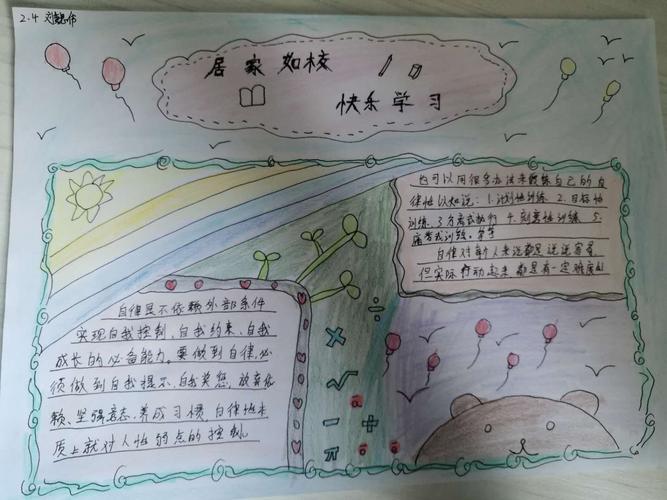 2.4 刘懿伟
居家如校
快乐学习
也可以用很多办法来锻炼自己的自
律性以如说：1.计划性训练.2.目标性
训练.3.方式执行 4.刻意性训练 5.
痛苦式训练。等等
自律对每个人来说都是说说容易
但实际行动起来都是有一定难度的
自律是不依赖外部条件
实现自我控制、自我约束、自我
成长的必备能力。要做到自律,必
须做到自我提示、自我关怀、放弃依
赖、坚强意志、养成习惯,自律性本
质上就对人性弱点的控制。
÷
×
√
- +
π ā ā